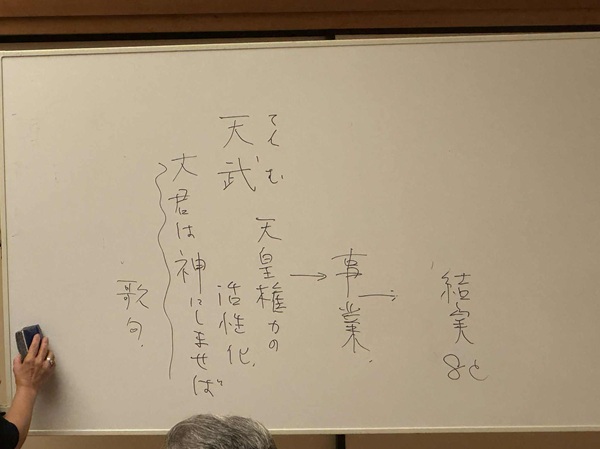 結実
8C
事業
天皇権力の
活性化
てんむ
天武
大君は神にしませば
歌句